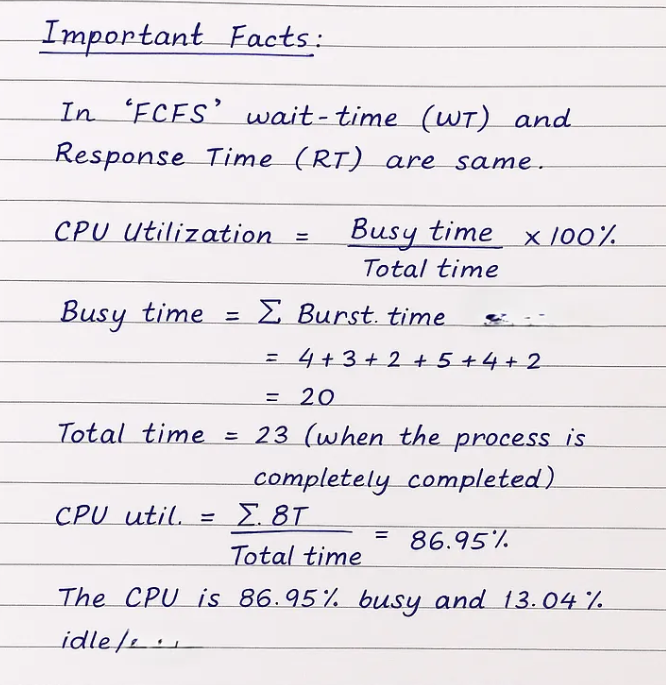 Important Facts:
In 'FCFS' wait-time (WT) and
Response Time (RT) are same.
CPU Utilization = Busy time / Total time × 100%
Busy time = Σ Burst. time
= 4+3+2+5+4+2
= 20
Total time = 23 (when the process is
completely completed)
CPU util. = Σ. BT / Total time = 86.95%
The CPU is 86.95% busy and 13.04%
idle/